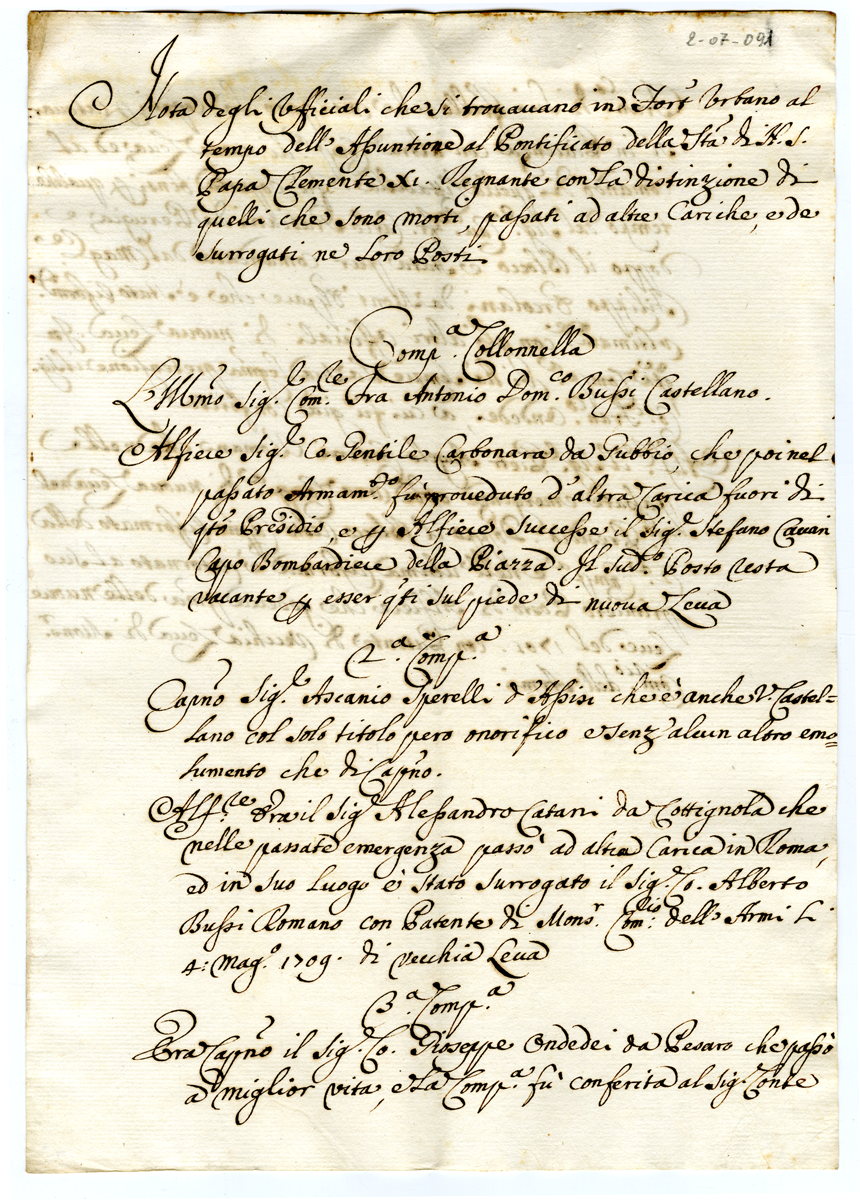 2-07-091
Nota degli Ufficiali che si trovavano in Fort' Urbano al
tempo dell' Assuntione al Pontificato della Stà di N. S.
Papa Clemente XI. Regnante con la distinzione di
quelli che sono morti, passati ad altre Cariche, e de
surrogati ne loro Posti.
Comp.a Collonnella
L'Illmo Sig.r Com.re Fra Antonio Dom.co Bussi Castellano.
Alfiere Sig.r Co. Gentile Carbonara da Gubbio, che poi nel
passato Armam.to fù proveduto d'altra Carica fuori di
qto Presidio, e p Alfiere successe il Sig.r Stefano Cavari
Capo Bombardiere della Piazza. Il sud.o Posto resta
vacante p esser qti sul piede di nuova Leva
2.a Comp.a
Capno Sig.r Ascanio Sperelli d'Assisi che è anche V. Castel=
lano col solo titolo pero onorifico e senz'alcun altro emo=
lumento che di Capno.
Alf.re Era il Sig.r Alessandro Catani da Cottignola che
nelle passate emergenza passò ad altra Carica in Roma,
ed in suo luogo è stato surrogato il Sig.r Co. Alberto
Bussi Romano con Patente di Mons.r Com.rio dell' Armi li
4: Mag.o 1709. di vecchia Leva
3.a Comp.a
Era Capno il Sig.r Co. Gioseppe Ondedei da Pesaro che passò
a miglior vita, e la Comp.a fù conferita al Sig.r Conte